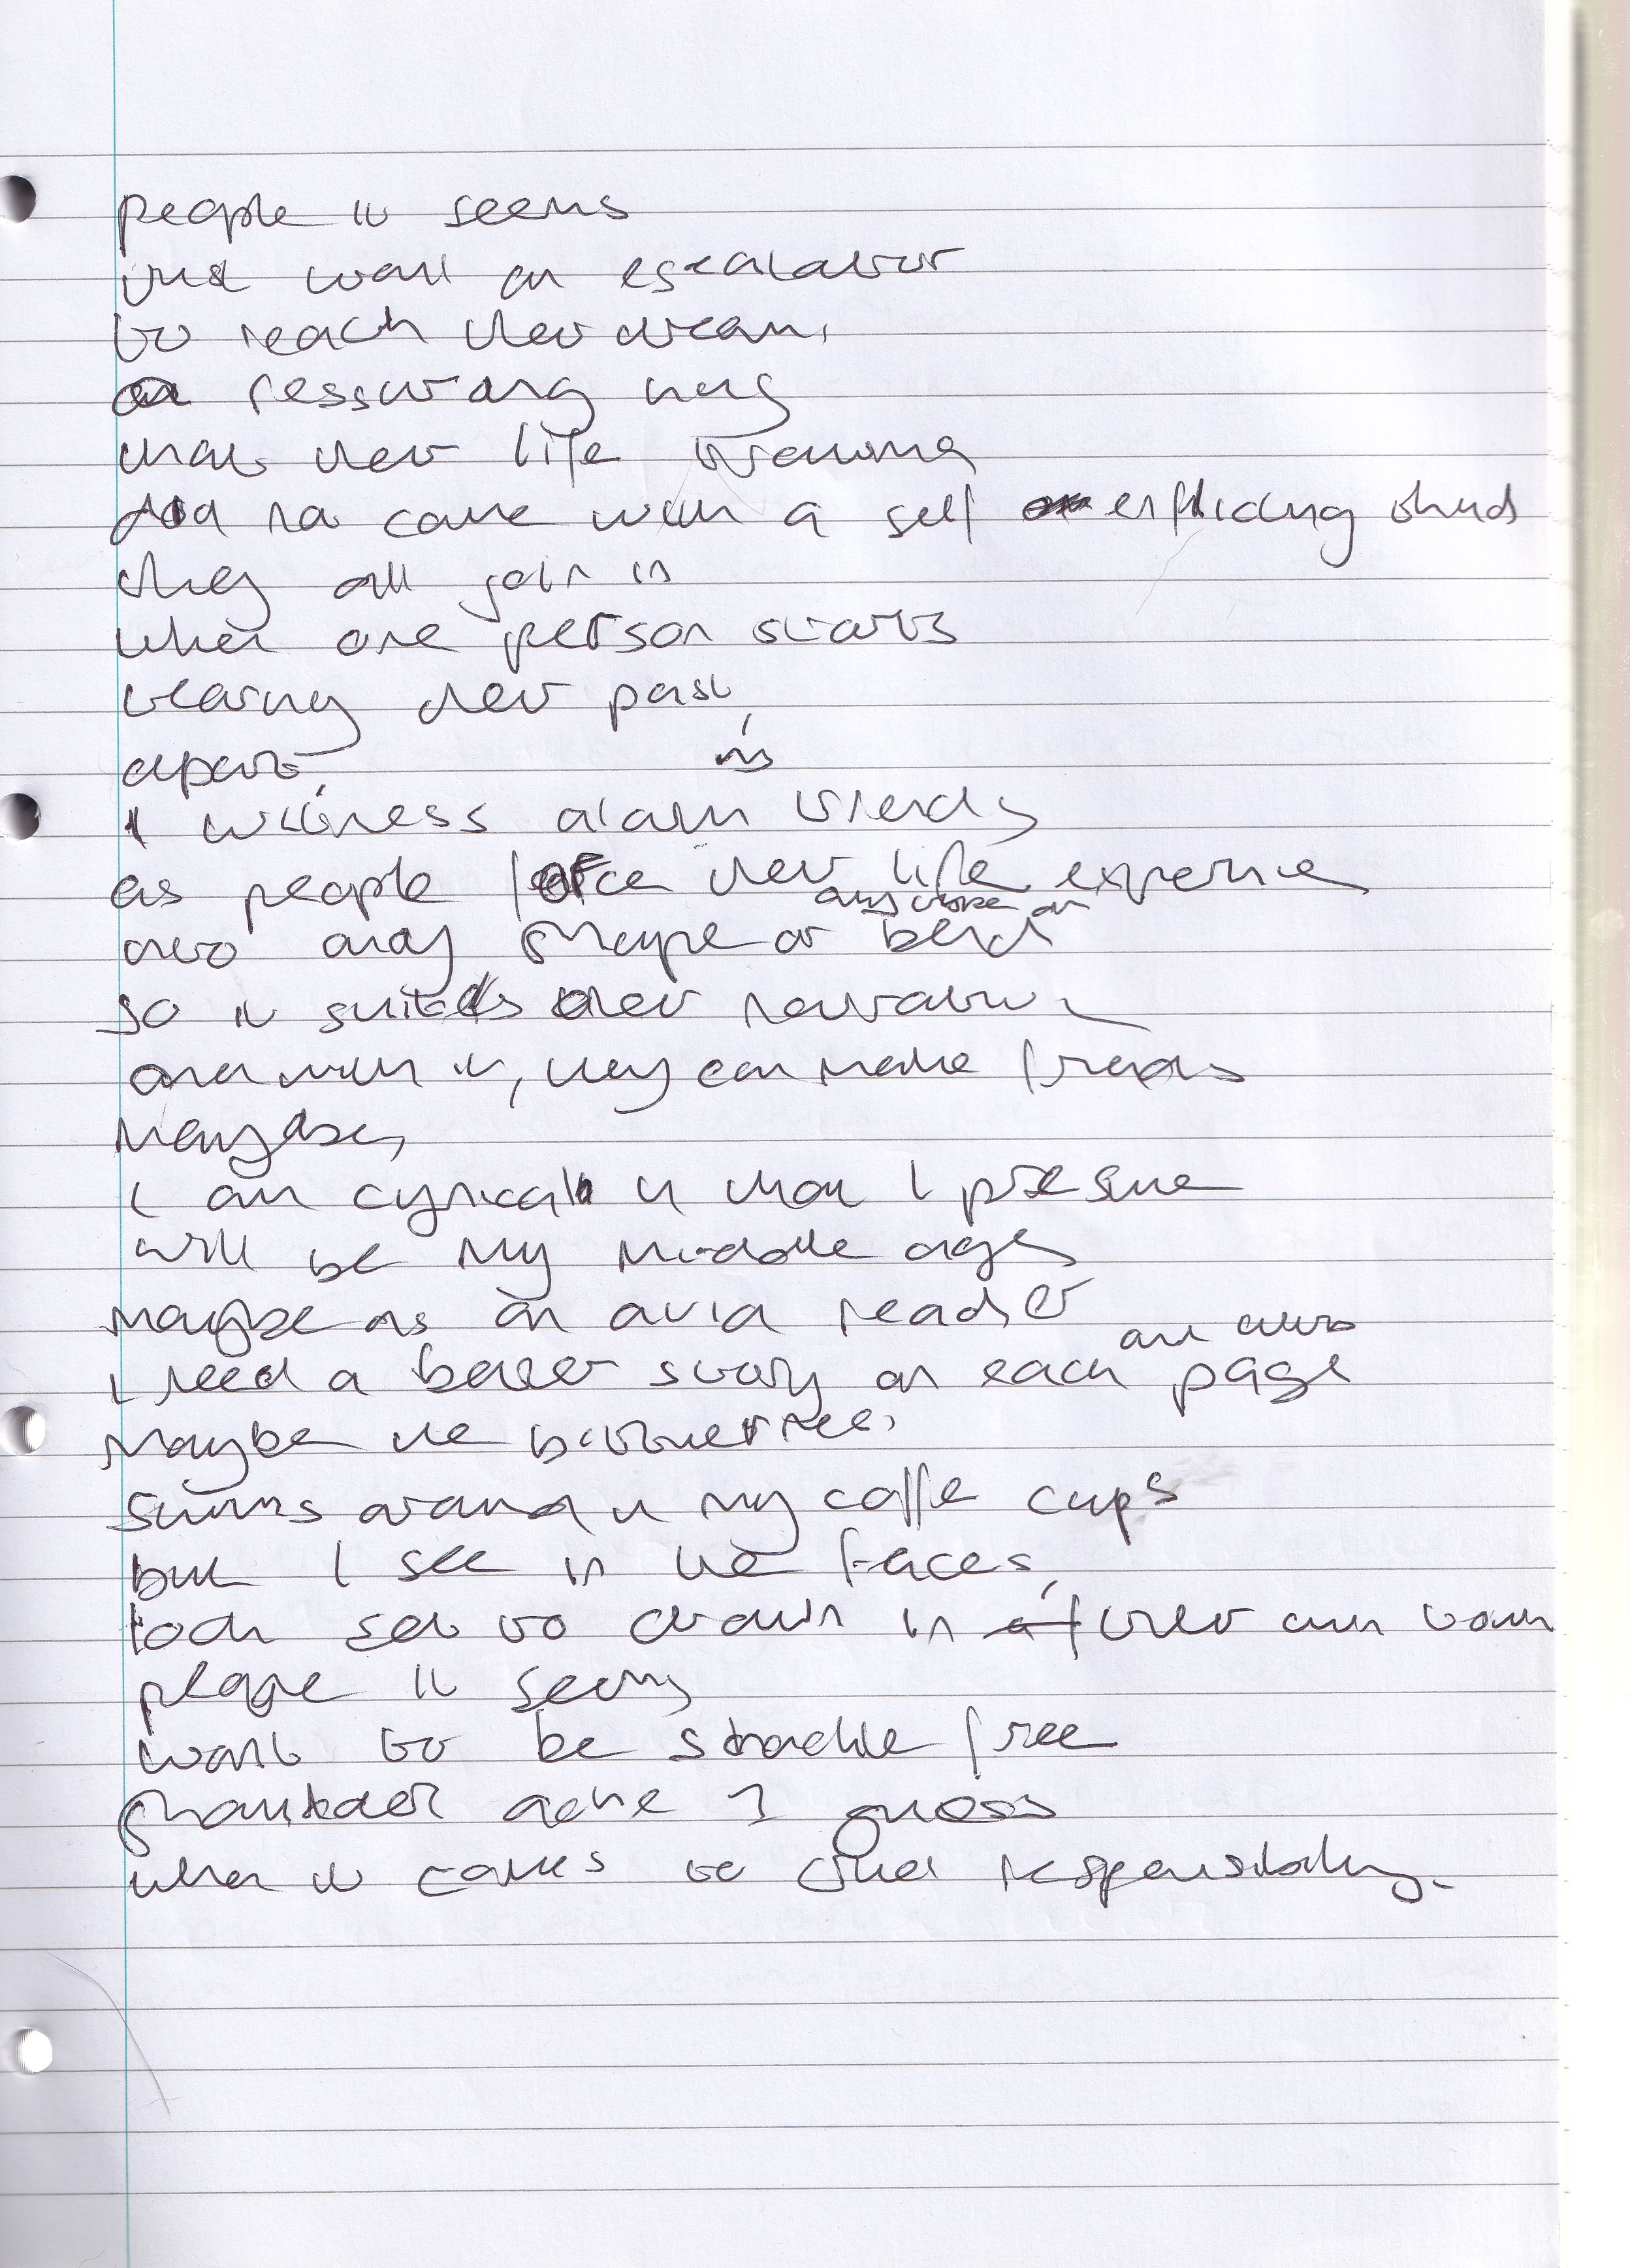 people it seems
just want an escalator
to reach their dream,
a reassuring hug
that their life trauma
did not come with a self inflicting thud
they all join in
when one person starts
tearing their past,
apart,
I witness alarm trends
as people force their life experience
into any shape or bend
so it suits their narrative
and with it, they can make friends
Maybe,
I am cynical in what I presume
will be my middle ages
maybe as an avid reader
I need a better story on each page
Maybe the bitterness,
swims around in my coffee cups
but I see in the faces,
people it seems
want to be shackle free
shoulder ache I guess
when it comes to their responsibility.